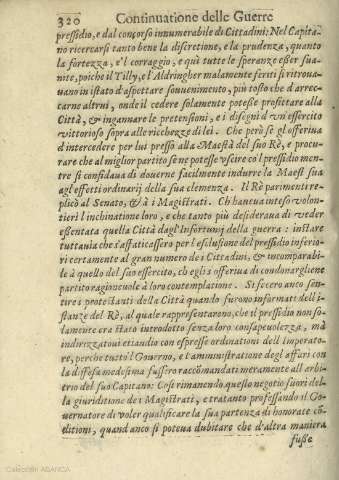 320 Continuatione delle Guerre
pressidio, e dal concorso innumerabile di Cittadini: Nel Capita-
no ricercarsi tanto bene la discretione, e la prudenza, quanto
la fortezza, e'l corraggio, e quì tutte le speranze esser sua-
nite, poiche il Tilly, e l'Aldringher malamente feriti si ritroua-
uano in istato d'aspettare souuenimento, più tosto che d'arrec-
carne altrui, onde il cedere solamente potesse profittare alla
Città, & ingannare le pretensioni, e i disegni d'vn essercito
vittorioso sopra alle ricchezze di lei. Che però sè gl'offeriua
d'intercedere per lui presso alla Maestà del suo Rè, e procu-
rare che al miglior partito se ne potesse vscire co'l pressidio men-
tre si confidaua di douerne facilmente indurre la Maestà sua
agl'effetti ordinarij della sua clemenza. Il Rè parimenti re-
plicò al Senato, & à i Magistrati. Ch'haueua inteso volon-
tieri l'inchinatione loro, e che tanto più desideraua di veder
essentata quella Città dagl'Infortunij della guerra: instare
tuttauia che s'affaticassero per l'esclusione del pressidio inferio-
ri certamente al gran numero de i Cittadini, & incomparabi-
le à quello del suo essercito, ch'egli s'offeriua di condonargliene
partito ragioneuole à loro contemplatione. Si fecero anco sen-
tire i protestanti della Città quando furono informati dell'i-
stanze del Rè, al quale rappresentarono, che il pressidio non so-
lamente era stato introdotto senza loro consapeuolezza, mà
indirizzatoui etiandio con espresse ordinationi dell'Imperato-
re, perche tutto'l Gouerno, e l'amministratione degl'affari con
la diffesa medesima fussero raccomandati meramente all'arbi-
trio del suo Capitano: Così rimanendo questo negotio fuori del-
la giuriditione de i Magistrati, e tratanto professando il Go-
uernatore di voler qualificare la sua partenza di honorate cō-
ditioni, quando anco si poteua dubitare che d'altra maniera
fusse
Colección ABANCA